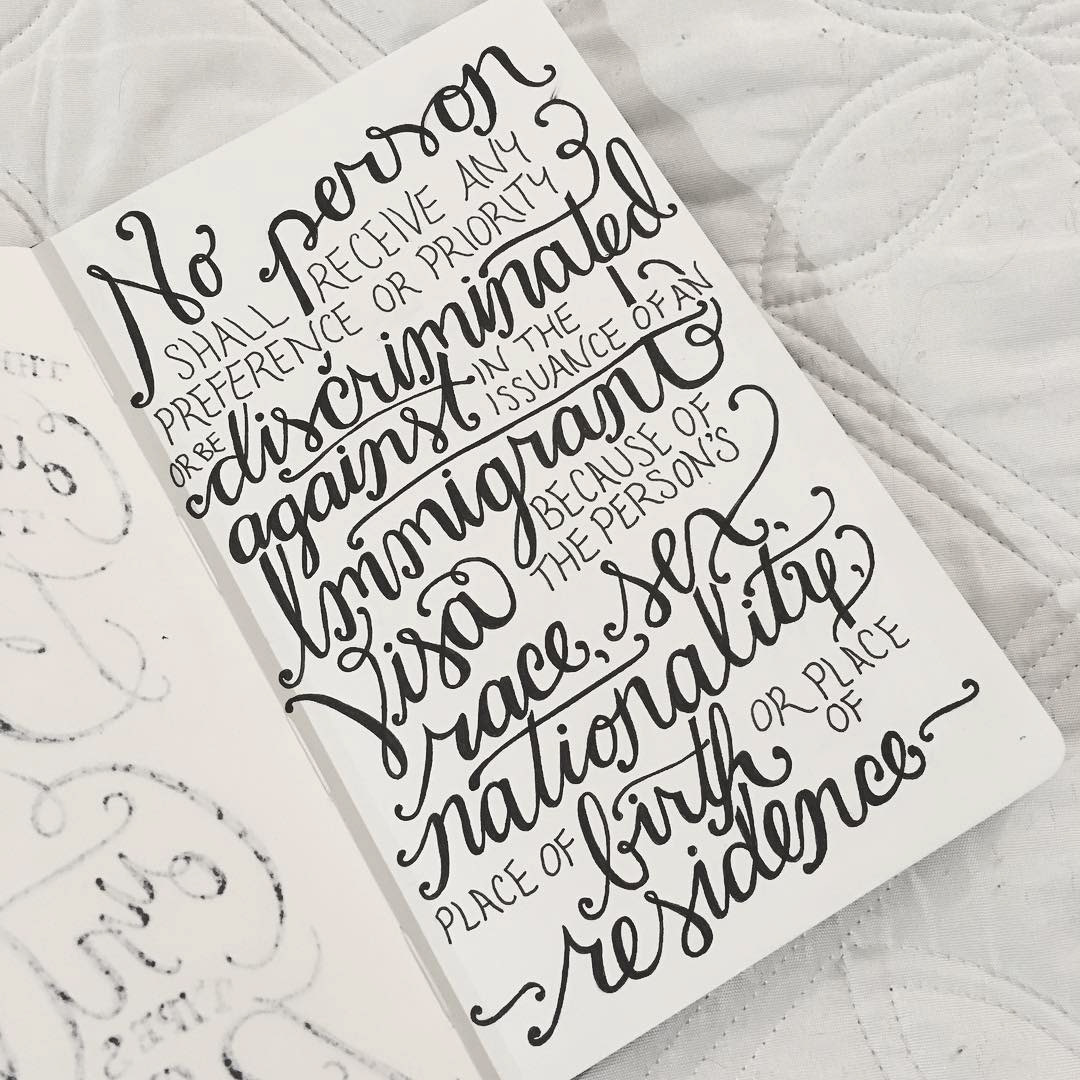 No person
SHALL RECEIVE ANY
PREFERENCE OR PRIORITY
OR BE discriminated
against IN THE
ISSUANCE OF AN
Immigrant
Visa BECAUSE OF
THE PERSON'S
race, sex,
nationality,
PLACE OF birth OR PLACE
OF
residence